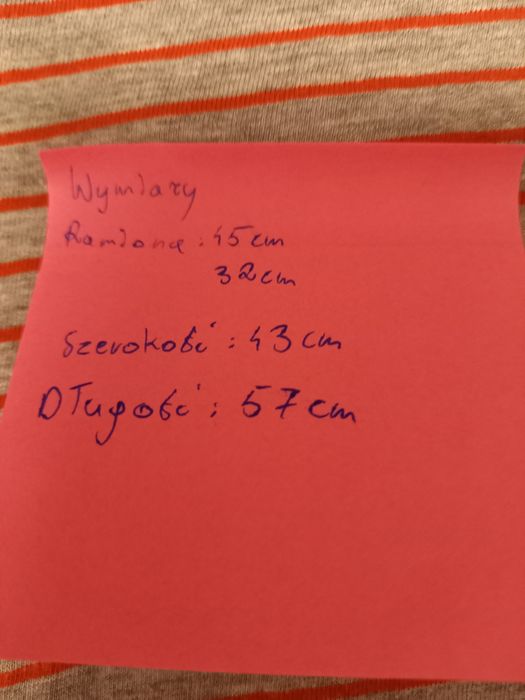 Wymiary
Ramiona: 45 cm
32 cm
Szerokość: 43 cm
Długość: 57 cm